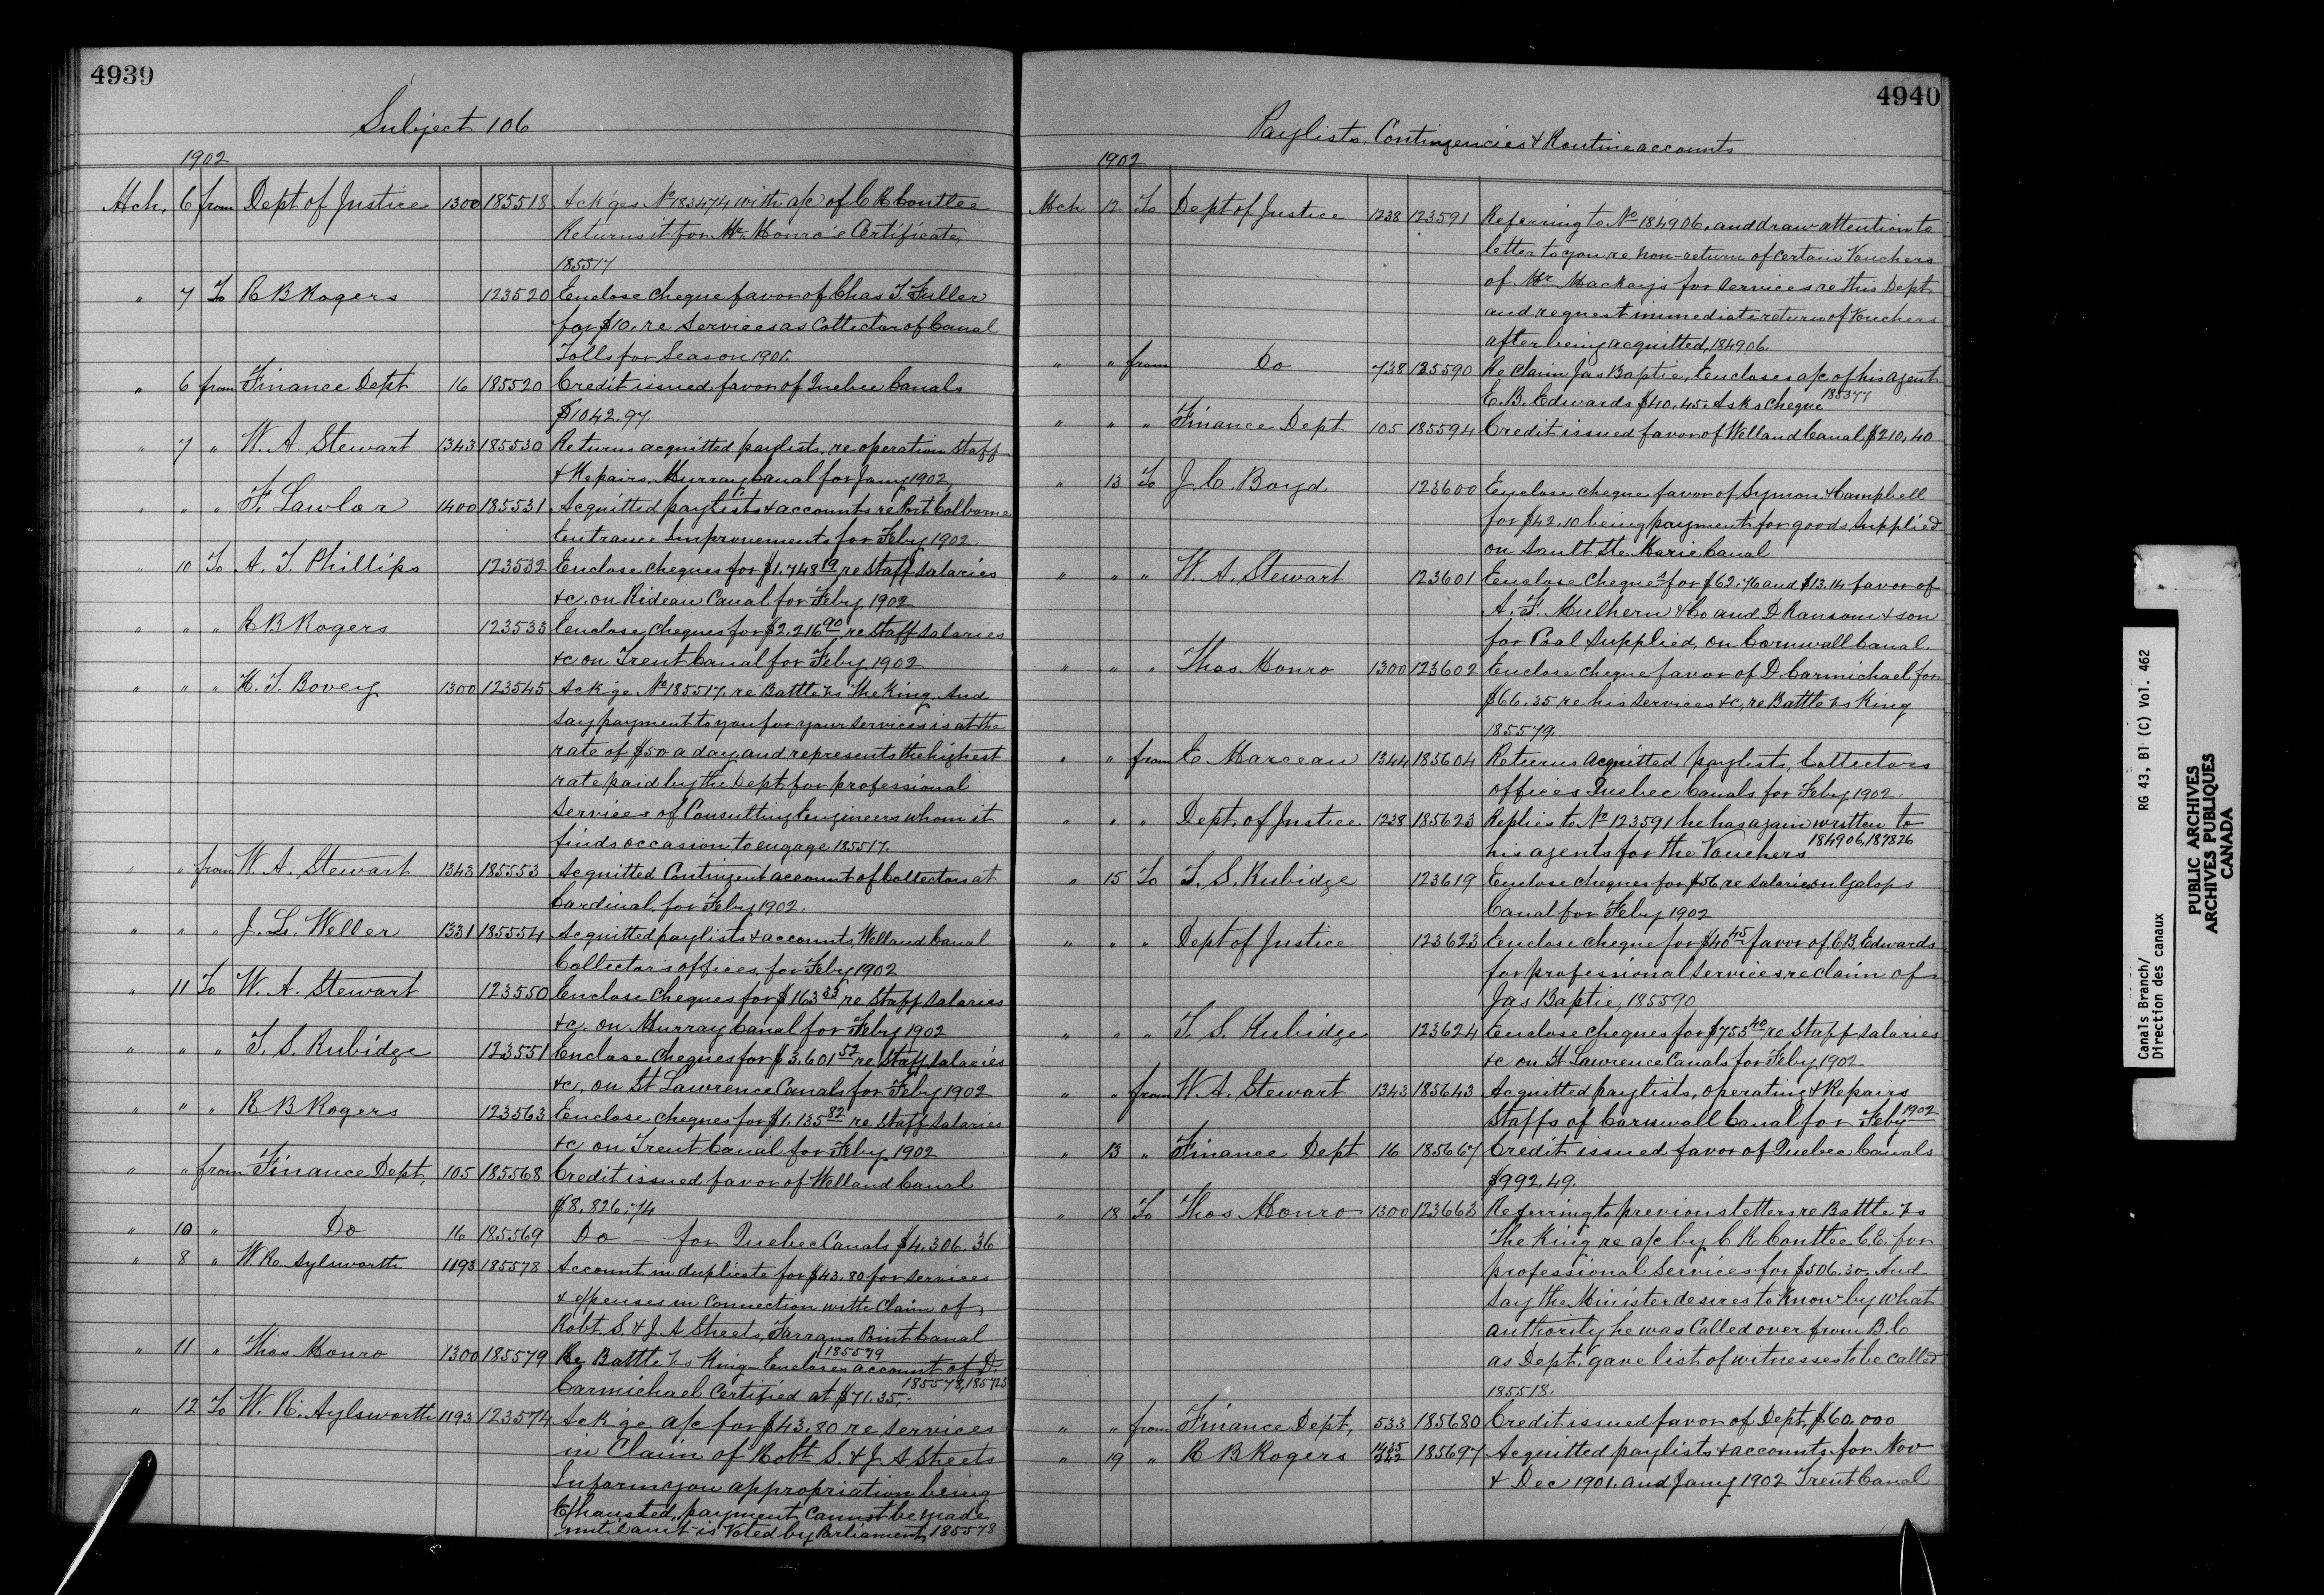 4939
Subject 106
1902
Mch. 6 from Dept of Justice 1300 185518 Ack'ges No 183474 with a/c of C R Coutlee
Returns it for Mr. Monro's Certificate,
185517
" 7 To R B Rogers 123520 Enclose cheque favor of Chas T. Fuller
for $10. re Services as Collector of Canal
Tolls for Season 1901.
" 6 from Finance Dept 16 185520 Credit issued favor of Quebec Canals
$1042.97.
" 7 " W. A. Stewart 1343 185530 Returns acquitted paylists, re operation Staff
& Repairs, Murray Canal for Jany 1902,
" " " F. Lawlor 1400 185531 Acquitted paylists & accounts re Port Colborne
Entrance Improvements for Feby 1902.
" 10 To A. T. Phillips 123532 Enclose cheques for $1.748 19 re Staff Salaries
&c. on Rideau Canal for Feby 1902
" " " R B Rogers 123533 Enclose cheques for $2.216 90 re Staff Salaries
&c on Trent Canal for Feby 1902
" " " H. T. Bovey 1300 123545 Ack'ge No 185517. re Battle vs The King. And
say payment to you for your services is at the
rate of $50 a day and represents the highest
rate paid by the Dept. for professional
Services of Consulting Engineers whom it
finds occasion to engage 185517.
" " from W. A. Stewart 1343 185553 Acquitted Contingent account of Collectors at
Cardinal, for Feby 1902.
" " " J. L. Weller 1331 185554 Acquitted paylists & accounts, Welland Canal
Collector's offices, for Feby 1902
" 11 To W. A. Stewart 123550 Enclose Cheques for $163 33 re Staff Salaries
&c. on Murray Canal for Feby 1902
" " " T. S. Rubidge 123551 Enclose Cheques for $3.601 52 re Staff Salaries
&c, on St Lawrence Canals for Feby 1902
" " " R B Rogers 123563 Enclose cheques for $1.135 82 re Staff Salaries
&c on Trent Canal for Feby 1902
" " from Finance Dept, 105 185568 Credit issued favor of Welland Canal
$8.826.74
" 10 " Do 16 185569 Do — for Quebec Canals $4.306.36
" 8 " W. R. Aylsworth 1193 185578 Account in duplicate for $43.80 for Services
& expenses in Connection with Claim of
Robt. S. & J. A Sheets, Farrans Point Canal
" 11 " Thos Monro 1300 185579 Re Battle vs King Encloses account of D. 185579
Carmichael Certified at $71.35. 185578, 185725
" 12 To W. R. Aylsworth 1193 123574 Ack'ge a/c for $43.80 re services
in Claim of Robt S. & J. A Sheets
Inform you appropriation being
Exhausted, payment Cannot be made
until amt is Voted by Parliament, 185578
4940
Paylists, Contingencies & Routine accounts
1902
Mch 12 To Dept of Justice 1238 123591 Referring to No 184906, and draw attention to
letter to you re non-return of certain Vouchers
of Mr. Mackay's for services re this Dept
and request immediate return of Vouchers
after being acquitted, 184906.
" " from Do 738 185590 Re Claim Jas Baptie, Encloses a/c of his agent
E. B. Edwards $40.45. Asks cheque 185377
" " " Finance Dept. 105 185594 Credit issued favor of Welland Canal, $210,40
" 13 To J. C. Boyd 123600 Enclose cheque favor of Symon & Campbell
for $42.10 being payment for goods supplied
on Sault Ste. Marie Canal
" " " W. A. Stewart 123601 Enclose Cheques for $62.76 and $13.14 favor of
A. F. Mulhern & Co and D Ransom & son
for Coal supplied, on Cornwall Canal.
" " " Thos. Monro 1300 123602 Enclose cheque favor of D. Carmichael for
$66.35 re his services &c, re Battle vs King
185579.
" " from E. Marceau 1344 185604 Returns acquitted paylists, Collectors
offices Quebec Canals for Feby 1902.
" " " Dept. of Justice 1238 185623 Replies to No 123591 he has again written to
his agents for the Vouchers 184906, 187826
" 15 To T. S. Rubidge 123619 Enclose cheques for $56, re Salaries on Galops
Canal for Feby 1902
" " " Dept of Justice 123623 Enclose cheque for $40 45 favor of E B. Edwards
for professional services, re claim of
Jas Baptie, 185590
" " " T. S. Rubidge 123624 Enclose cheques for $753 40 re Staff Salaries
&c on St Lawrence Canals for Feby 1902
" " from W. A. Stewart 1343 185643 Acquitted paylists, operating & Repairs
Staffs of Cornwall Canal for Feby 1902
" 13 " Finance Dept 16 185667 Credit issued favor of Quebec Canals
$992.49.
" 18 To Thos Monro 1300 123663 Referring to previous letters, re Battle vs
The King re a/c by C R Coutlee C.E. for
professional Services for $506.30. And
say the Minister desires to know by what
authority he was Called over from B. C
as Dept, gave list of witnesses to be called
185518.
" " from Finance Dept, 533 185680 Credit issued favor of Dept, $60.000
" 19 " R B Rogers 1435 342 185697 Acquitted paylists & accounts for Nov
& Dec 1901. and Jany 1902 Trent Canal
Canals Branch/ RG 43, B1 (C) Vol. 462
Direction des canaux
PUBLIC ARCHIVES
ARCHIVES PUBLIQUES
CANADA